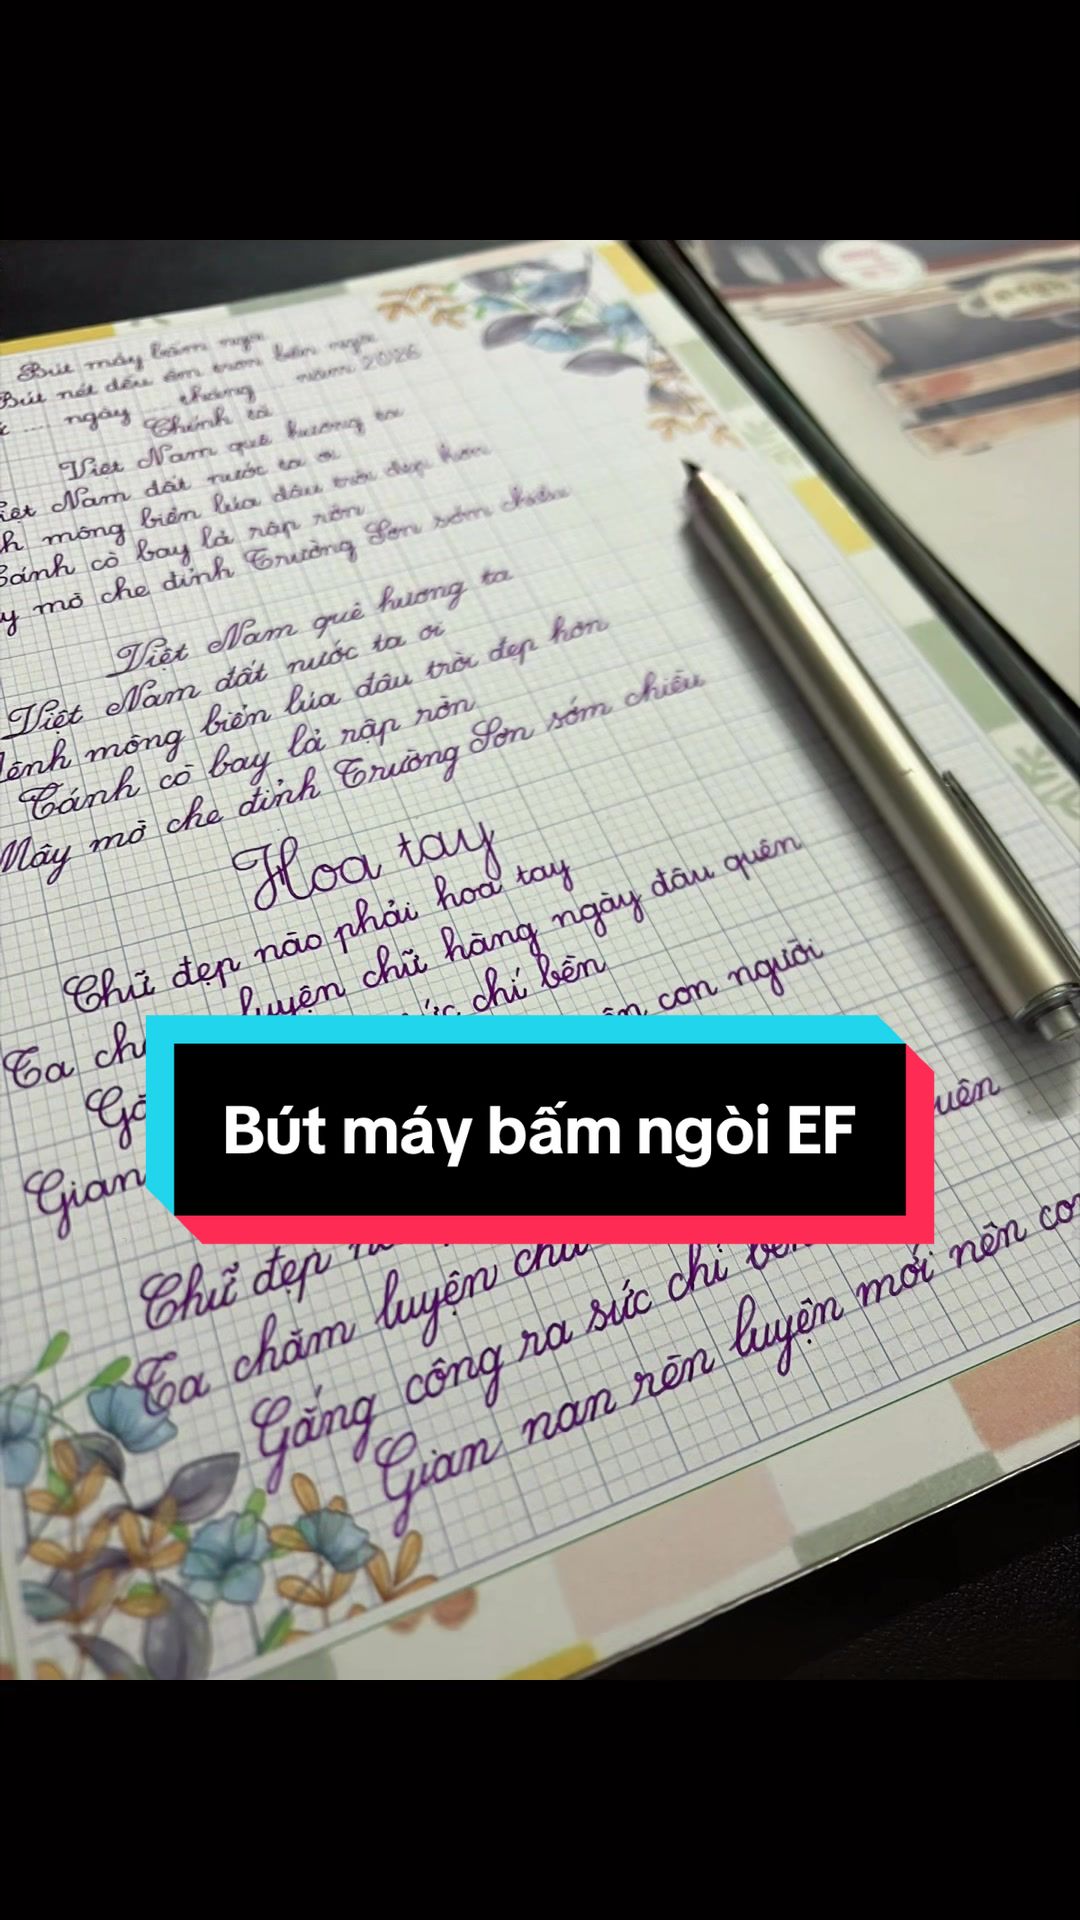 Bút máy bấm ngòi
Bút nét đều êm trơn bấm ngòi
ngày ... tháng ... năm 2026
Chính tả
Việt Nam quê hương ta
Việt Nam đất nước ta ơi
mông biển lúa đâu trời đẹp hơn
Cánh cò bay lả rập rờn
mờ che đỉnh Trường Sơn sớm chiều
Việt Nam quê hương ta
Việt Nam đất nước ta ơi
Mênh mông biển lúa đâu trời đẹp hơn
Cánh cò bay lả rập rờn
Mây mờ che đỉnh Trường Sơn sớm chiều
Hoa tay
Chữ đẹp nào phải hoa tay
Ta luyện chữ hàng ngày đâu quên
chí bền
Gian con người
Bút máy bấm ngòi EF
Chữ đẹp
Ta chăm luyện chữ
Gắng công ra sức chí bền
Gian nan rèn luyện mới nên